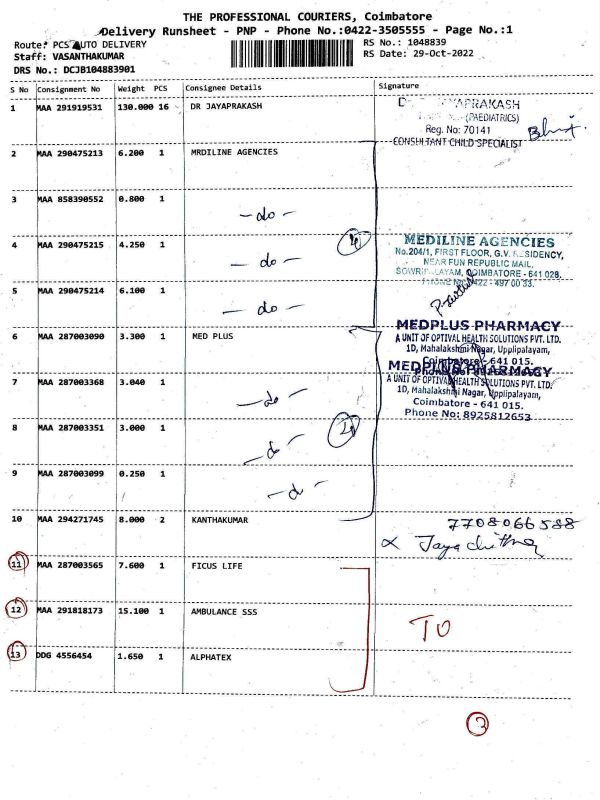 THE PROFESSIONAL COURIERS, Coimbatore
Delivery Runsheet - PNP - Phone No.:0422-3505555 - Page No.:1
Route: PCS AUTO DELIVERY
RS No.: 1048839
Staff: VASANTHAKUMAR
RS Date: 29-Oct-2022
DRS No.: DCJB104883901
S No Consignment No Weight PCS Consignee Details Signature
1 MAA 291919531 130.000 16 DR JAYAPRAKASH
(PAEDIATRICS)
Reg. No: 70141
CONSULTANT CHILD SPECIALIST
2 MAA 290475213 6.200 1 MRDILINE AGENCIES
3 MAA 858390552 0.800 1
- do -
4 MAA 290475215 4.250 1
- do -
MEDILINE AGENCIES
No.204/1, FIRST FLOOR, G.V. RESIDENCY,
NEAR FUN REPUBLIC MAIL,
COIMBATORE - 641 028.
5 MAA 290475214 6.100 1
- do -
6 MAA 287003090 3.300 1 MED PLUS
MEDPLUS PHARMACY
A UNIT OF OPTIVAL HEALTH SOLUTIONS PVT. LTD.
1D, Mahalakshmi Nagar, Upplipalayam,
Coimbatore - 641 015.
7 MAA 287003368 3.040 1
- do -
MEDPLUS PHARMACY
A UNIT OF OPTIVAL HEALTH SOLUTIONS PVT. LTD.
1D, Mahalakshmi Nagar, Upplipalayam,
Coimbatore - 641 015.
Phone No: 8925812653
8 MAA 287003351 3.000 1
- do -
9 MAA 287003099 0.250 1
- do -
10 MAA 294271745 8.000 2 KANTHAKUMAR
7708066588
11 MAA 287003565 7.600 1 FICUS LIFE
12 MAA 291818173 15.100 1 AMBULANCE SSS
TO
13 DDG 4556454 1.650 1 ALPHATEX